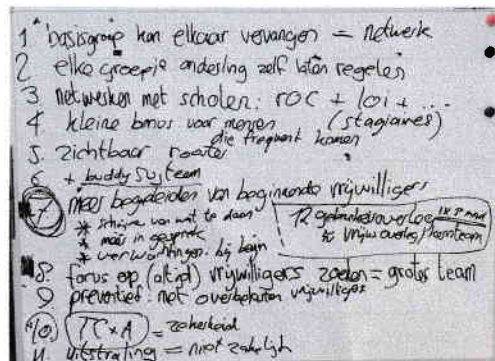 1 basisgroep kan elkaar vervangen = netwerk
2 elke groepje onderling zelf laten regelen
3 netwerken met scholen: ROC + LOI + ...
4 kleine bonus voor mensen (stagiaires)
die frequent komen
5. zichtbaar rooster
6 + buddy systeem
7 meer begeleiden van beginnende vrijwilligers
* van wat te doen
* meer in gesprek
* verwachtingen bij begin
12 gebruikersoverleg
vrijw overleg / kernteam
8 focus op (altijd) vrijwilligers zoeken = groter team
9 preventief: niet overbelasten vrijwilligers
10) TC x A =
11 uitstraling = niet zakelijk